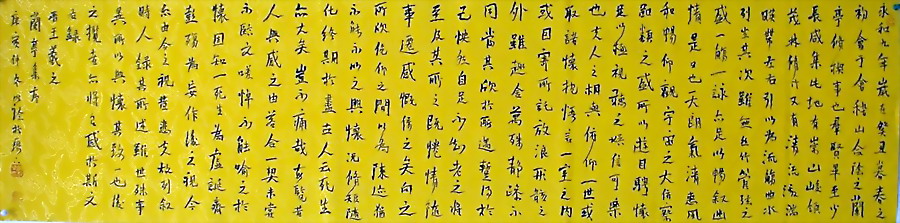 永和九年歲在癸丑暮春
初會于會稽山陰之蘭
亭修禊事也群賢畢至少
長咸集此地有崇山峻領
茂林脩竹又有清流激湍
映帶左右引以為流觴曲水
列坐其次雖無絲竹管弦之
盛一觴一詠亦足以暢敘幽
情是日也天朗氣清惠風
和暢仰觀宇宙之大俯察
品類之盛所以遊目騁懷
足以極視聽之娛信可樂
也夫人之相與俯仰一世或
取諸懷抱悟言一室之內
或因寄所託放浪形骸之
外雖趣舍萬殊靜躁不
同當其欣於所遇暫得於
己快然自足不知老之將
至及其所之既惓情隨
事遷感慨係之矣向之
所欣俛仰之間以為陳迹猶
不能不以之興懷況修短隨
化終期於盡古人云死生
亦大矣豈不痛哉每覽昔
人興感之由若合一契未嘗
不臨文嗟悼不能喻之於
懷固知一死生為虛誕齊
彭殤為妄作後之視今
亦由今之視昔悲夫故列敘
時人錄其所述雖世殊事
異所以興懷其致一也後
之攬者亦將有感於斯文
錄
晉王羲之
蘭亭集序